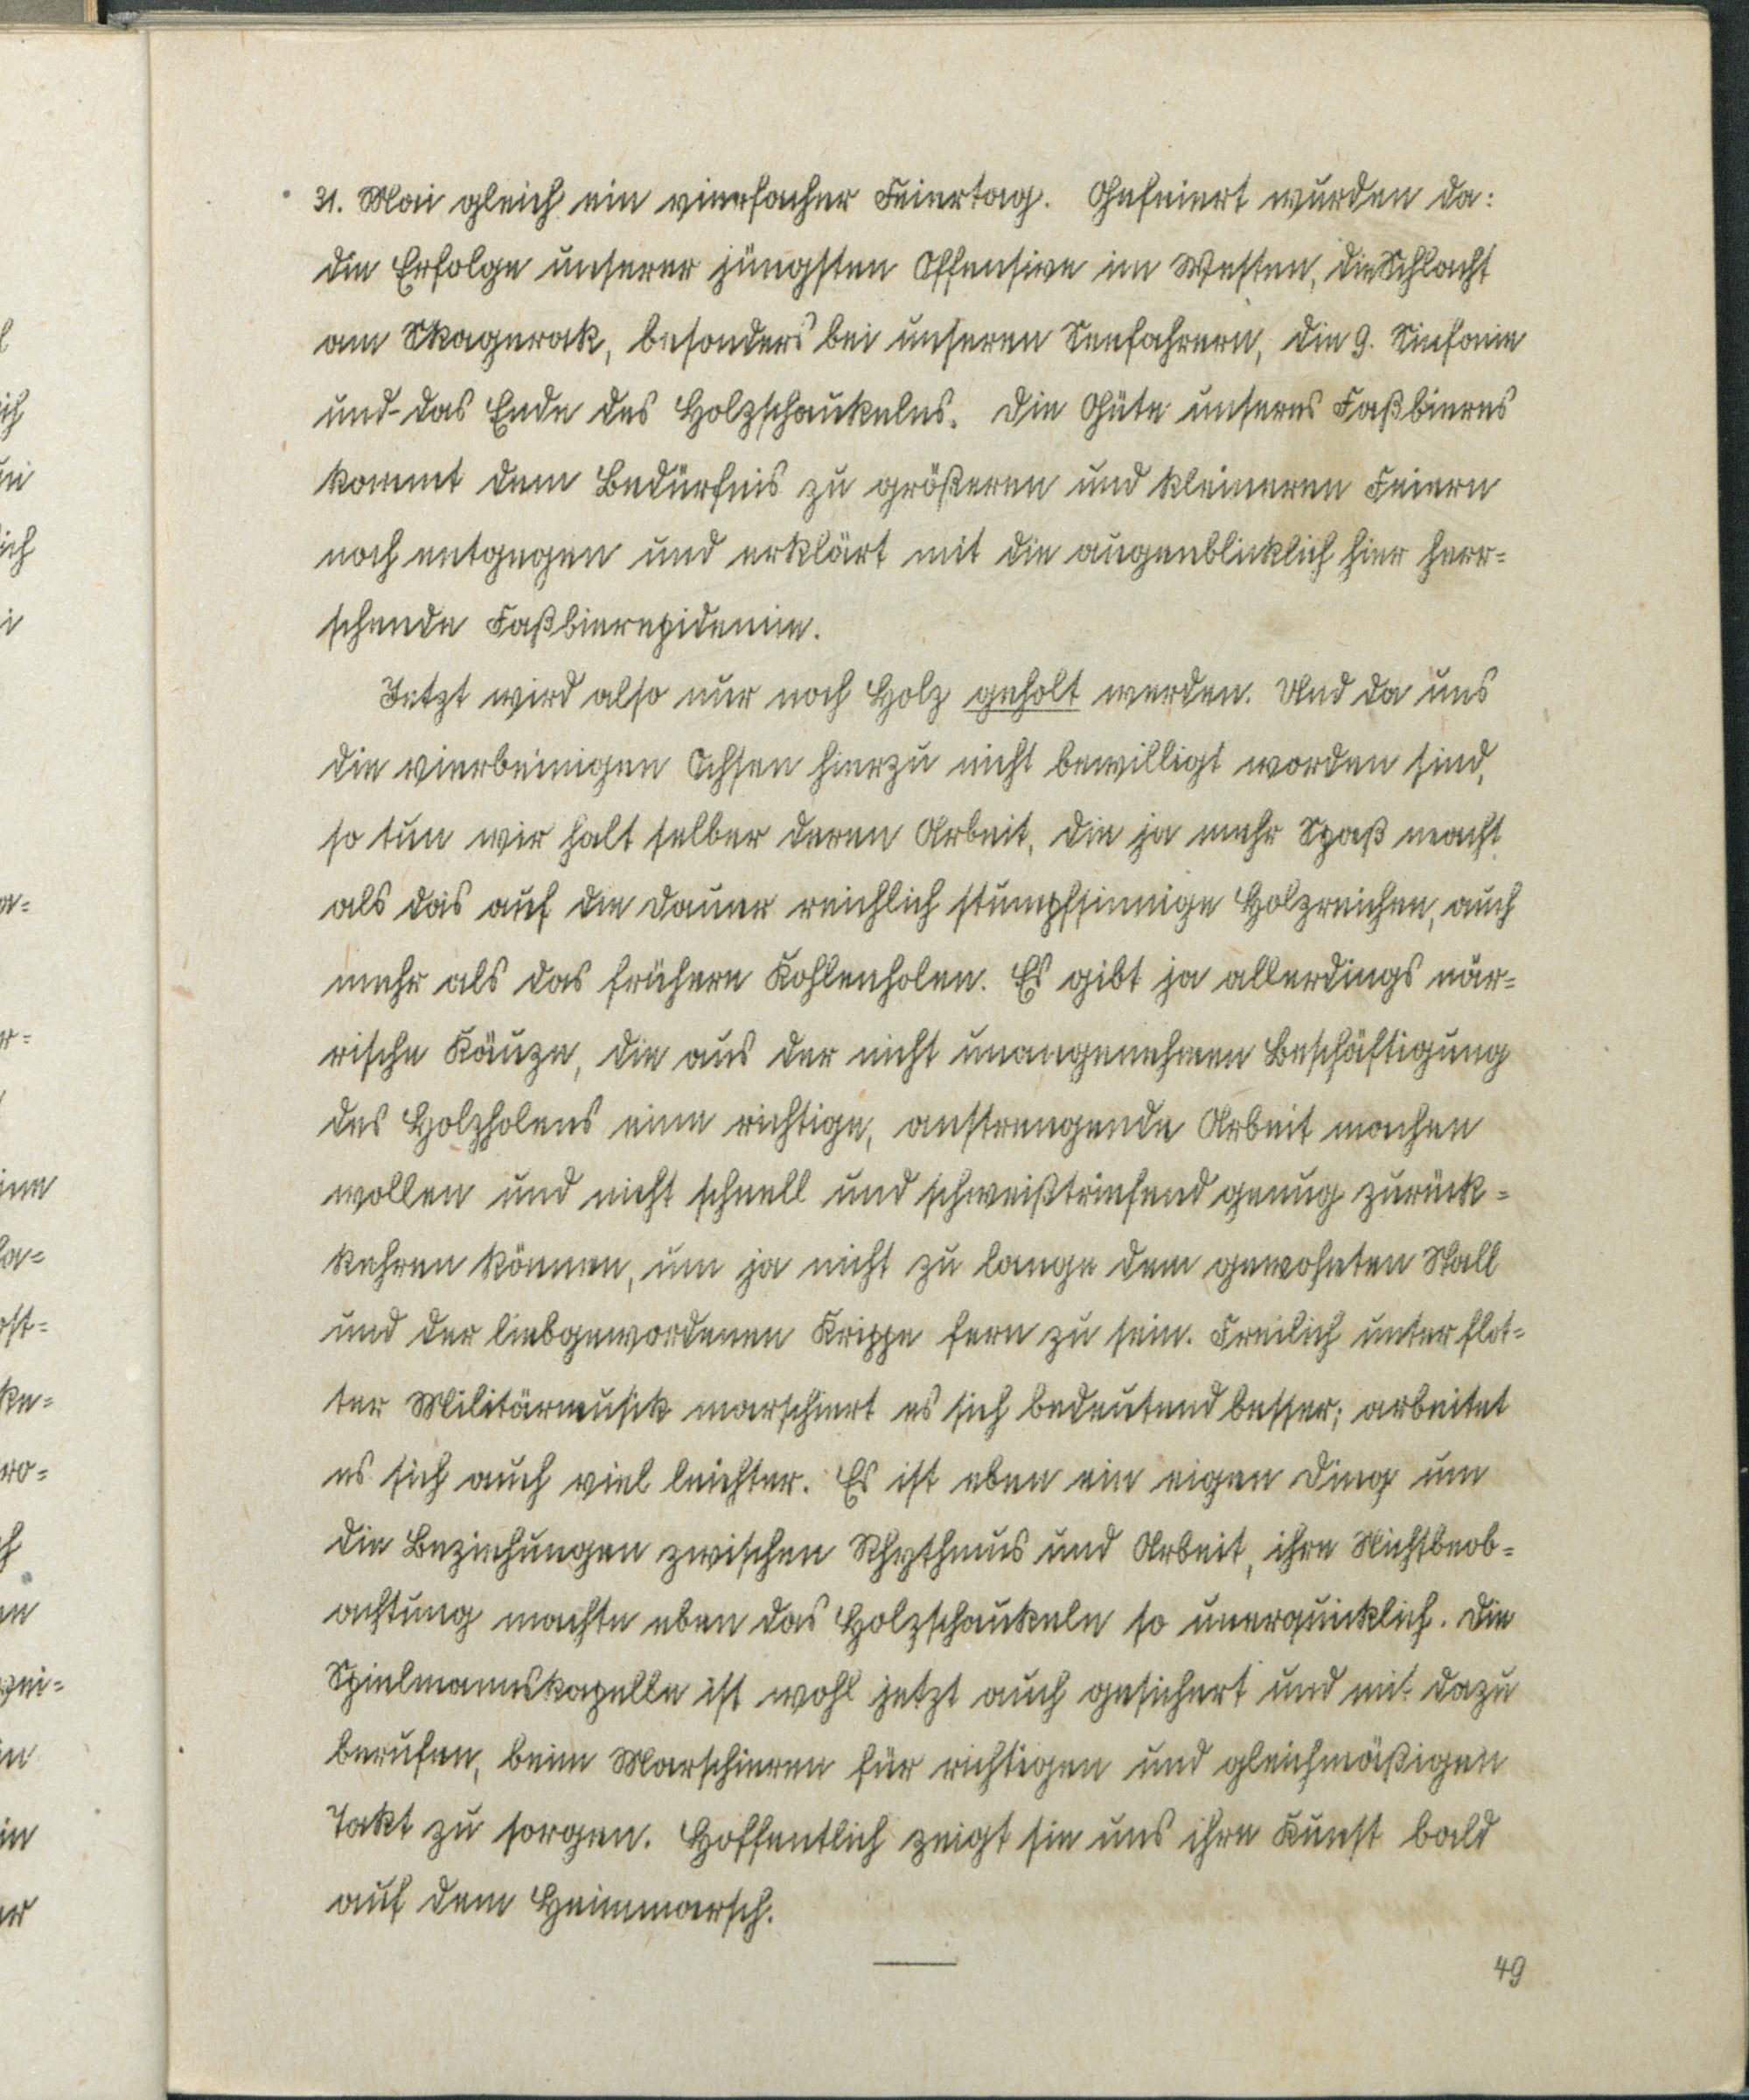 31. Mai gleich ein vierfacher Feiertag. Gefeiert wurden da:
die Erfolge unserer jüngsten Offensive im Westen, die Schlacht
am Skagerak, besonders bei unseren Seefahrern, die 9. Sinfonie
und das Ende des Holzschaukelns. Die Güte unseres Faßbieres
kommt dem Bedürfnis zu größeren und kleineren Feiern
noch entgegen und erklärt mit die augenblicklich hier herr=
schende Faßbierepidemie.
Jetzt wird also nur noch Holz geholt werden. Und da uns
die vierbeinigen Ochsen hierzu nicht bewilligt worden sind,
so tun wir halt selber deren Arbeit, die ja mehr Spaß macht
als das auf die Dauer reichlich stumpfsinnige Holzreichen, auch
mehr als das frühere Kohlenholen. Es gibt ja allerdings när=
rische Käuze, die aus der nicht unangenehmen Beschäftigung
des Holzholens eine richtige, anstrengende Arbeit machen
wollen und nicht schnell und schweißtriefend genug zurück=
kehren können, um ja nicht zu lange dem gewohnten Stall
und der liebgewordenen Krippe fern zu sein. Freilich unter flot=
ter Militärmusik marschiert es sich bedeutend besser; arbeitet
es sich auch viel leichter. Es ist eben ein eigen Ding um
die Beziehungen zwischen Rhythmus und Arbeit, ihre Nichtbeob=
achtung machte eben das Holzschaukeln so unerquicklich. Die
Spielmannskapelle ist wohl jetzt auch gesichert und mit dazu
berufen, beim Marschieren für richtigen und gleichmäßigen
Takt zu sorgen. Hoffentlich zeigt sie uns ihre Kunst bald
auf dem Heimmarsch.
49